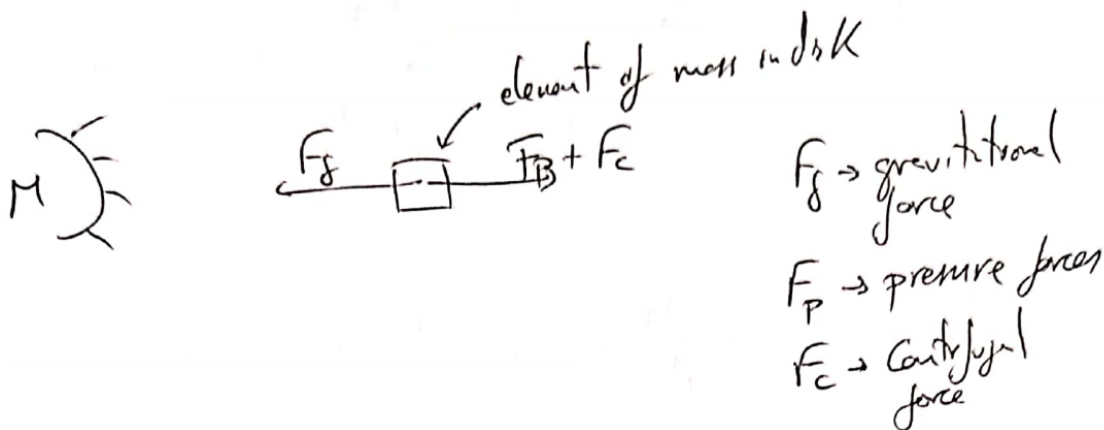 element of mass in disk
M
Fg
FB + Fc
Fg → gravitational
force
Fp → pressure forces
Fc → Centrifugal
force